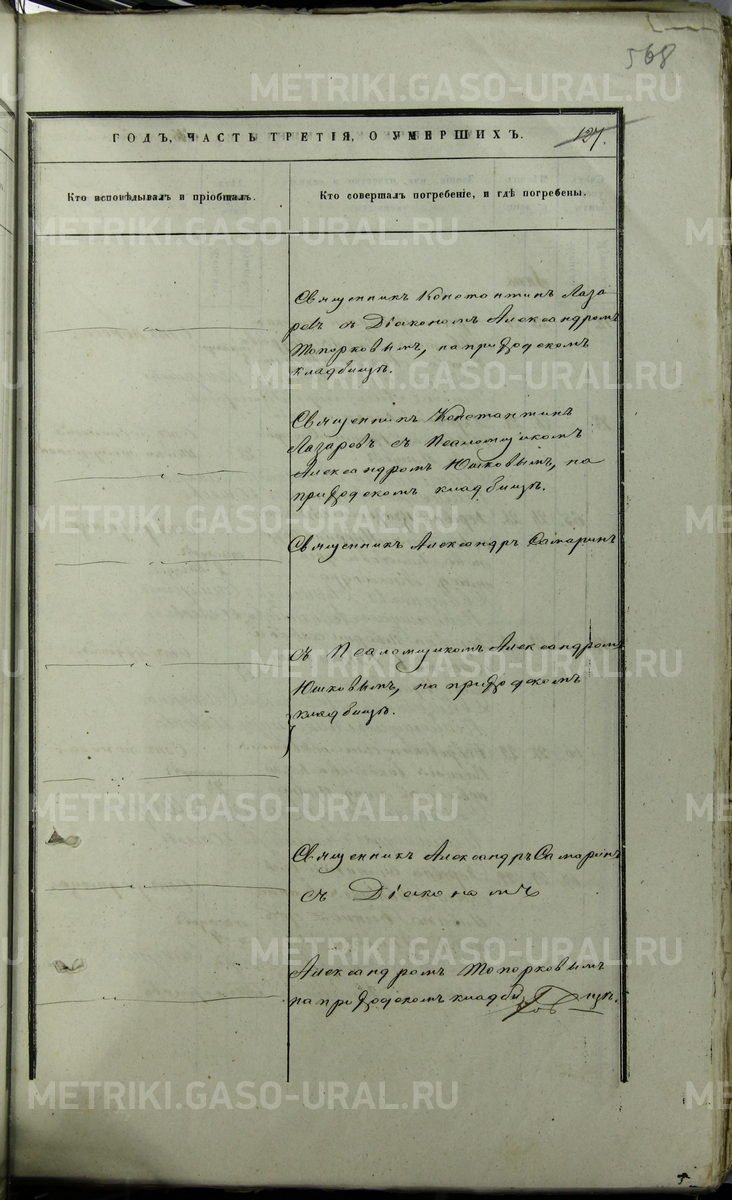 568
ГОДЪ, ЧАСТЬ ТРЕТІЯ, О УМЕРШИХЪ.
127.
Кто исповѣдывалъ и пріобщалъ.
Кто совершалъ погребеніе, и гдѣ погребены.
Священникъ Константинъ Лаза
ревъ съ Діакономъ Александромъ
Топорковымъ, на приходскомъ
кладбищѣ.
Священникъ Константинъ
Лазаревъ съ Псаломщикомъ
Александромъ Юшковымъ, на
приходскомъ кладбищѣ.
Священникъ Александръ Самаринъ
съ Псаломщикомъ Александромъ
Юшковымъ, на приходскомъ
кладбищѣ.
Священникъ Александръ Самаринъ
съ Діакономъ
Александромъ Топорковымъ
на приходскомъ кладбищѣ.
METRIKI.GASO-URAL.RU